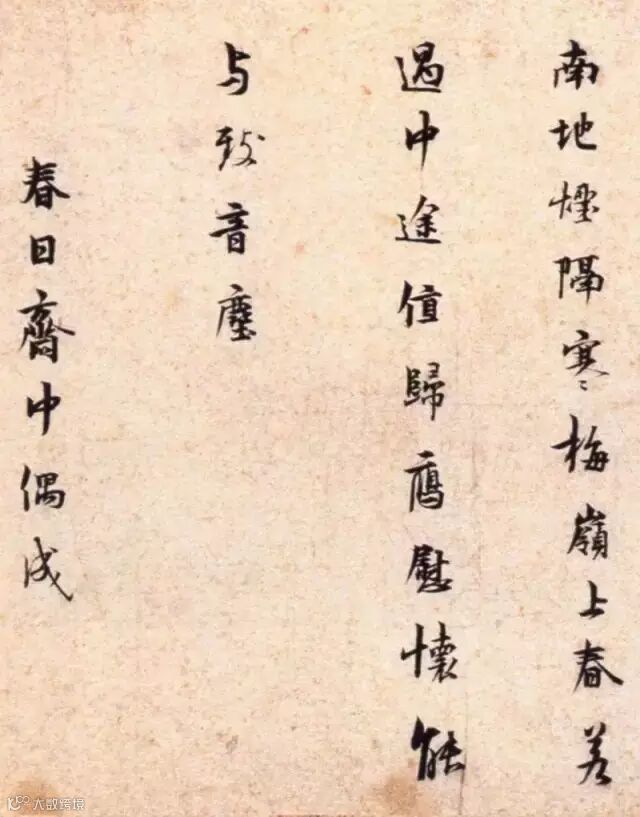 南地煙隔寒梅嶺上春若
遇中途值歸鴈慰懷能
与致音塵
春日齋中偶成
大数跨境